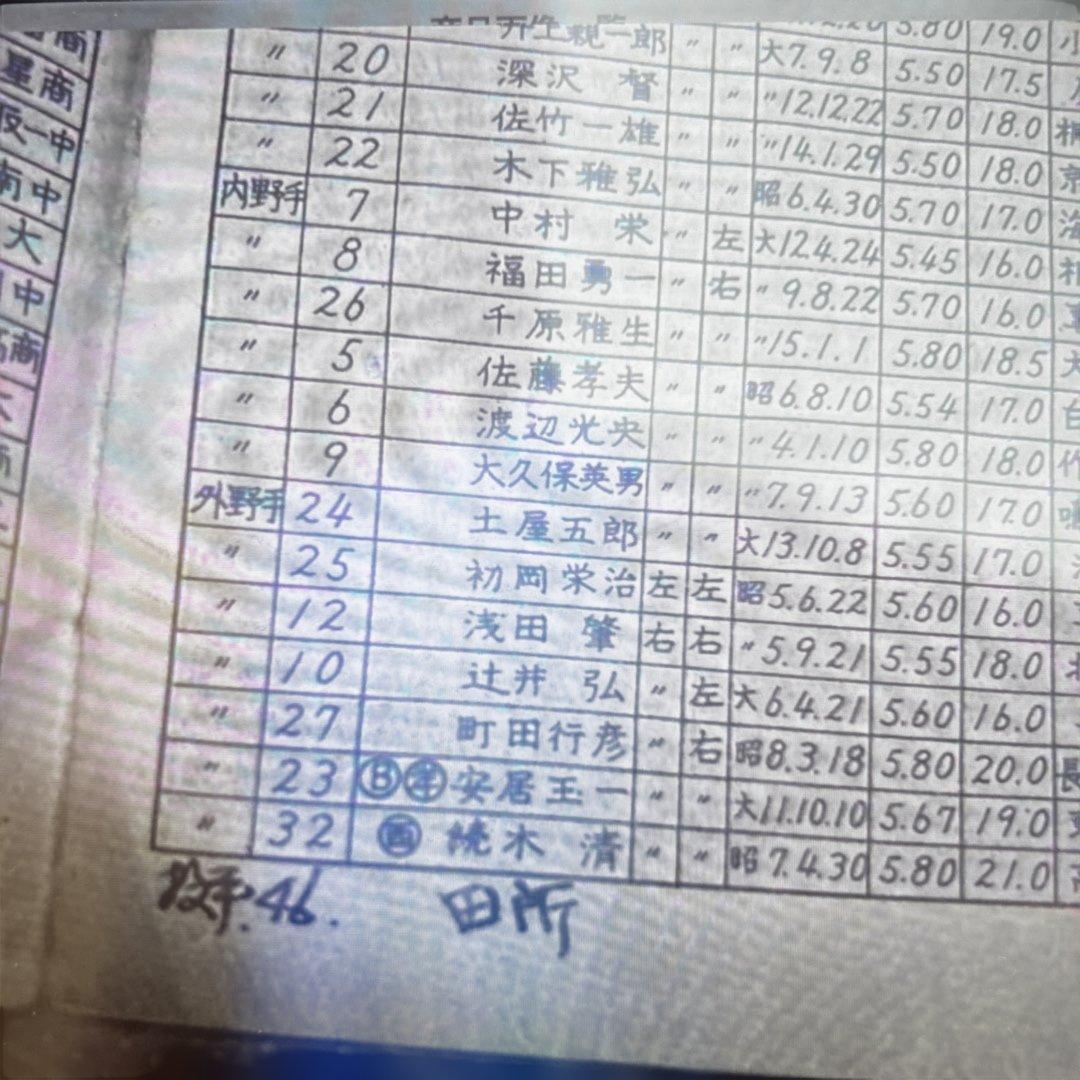 商
星商
阪一中
南中
大
中
商
5.80 19.0
親一郎 〃 〃 大7.9.8 5.50 17.5
〃 20 深沢 督 〃 〃 〃12.12.22 5.70 18.0
〃 21 佐竹一雄 〃 〃 〃14.1.29 5.50 18.0
〃 22 木下雅弘 〃 〃 昭6.4.30 5.70 17.0
内野手 7 中村 栄 〃 左 大12.4.24 5.45 16.0
〃 8 福田勇一 〃 右 〃9.8.22 5.70 16.0
〃 26 千原雅生 〃 〃 〃15.1.1 5.80 18.5
〃 5 佐藤孝夫 〃 〃 昭6.8.10 5.54 17.0
〃 6 渡辺光央 〃 〃 〃4.1.10 5.80 18.0
〃 9 大久保英男 〃 〃 〃7.9.13 5.60 17.0
外野手 24 土屋五郎 〃 〃 大13.10.8 5.55 17.0
〃 25 初岡栄治 左 左 昭5.6.22 5.60 16.0
〃 12 浅田 肇 右 右 〃5.9.21 5.55 18.0
〃 10 辻井 弘 〃 左 大6.4.21 5.60 16.0
〃 27 町田行彦 〃 右 昭8.3.18 5.80 20.0 長
〃 23 Ⓑ 安居玉一 〃 〃 大11.10.10 5.67 19.0
〃 32 木 清 〃 〃 昭7.4.30 5.80 21.0
投手. 46. 田所